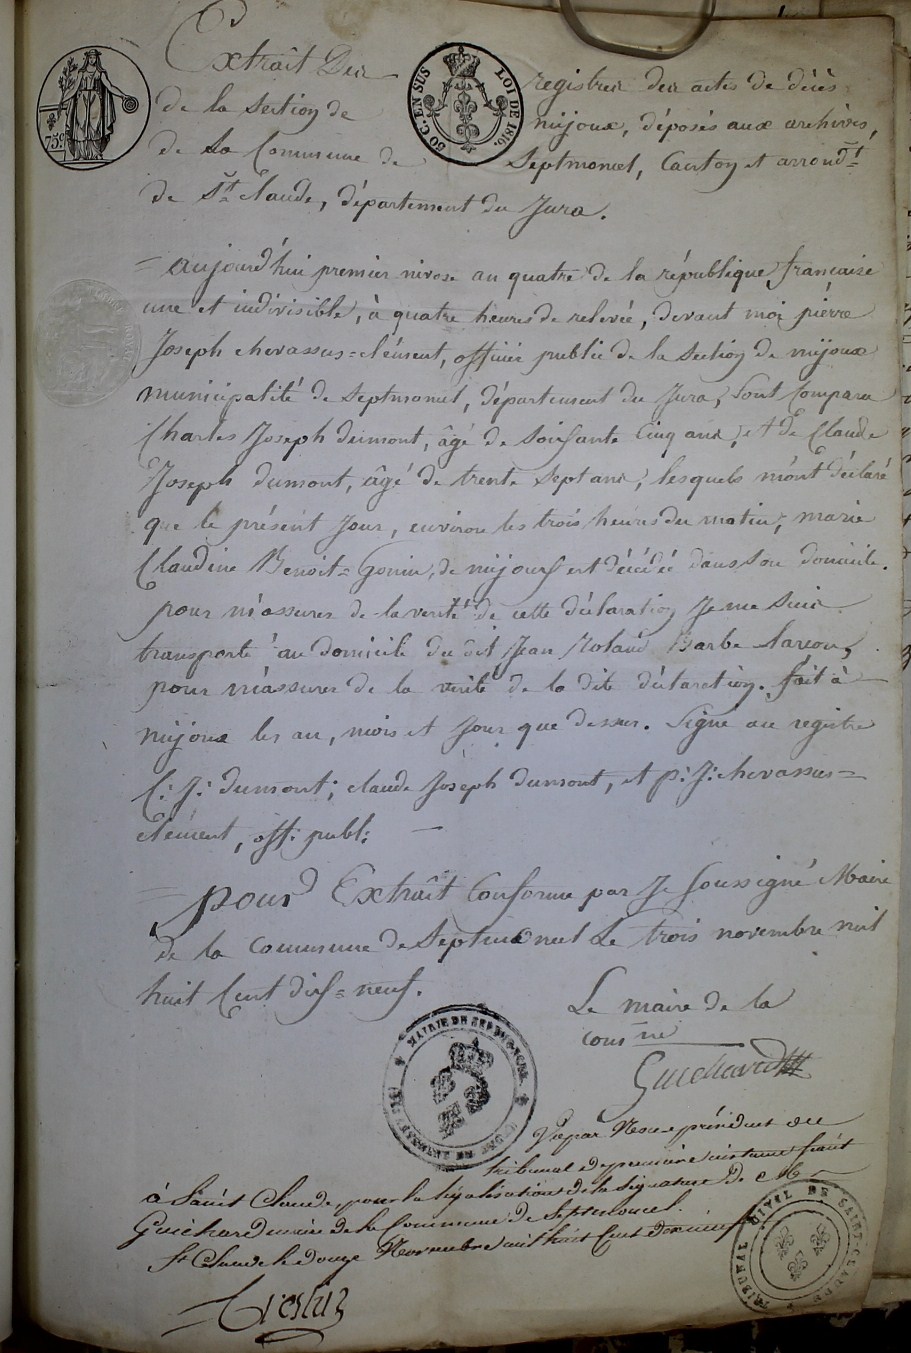 75c
50 C. EN SUS
LOI DE 1816.
Extrait Des registres des actes de décès
de la section de mijoux, déposés aux archives,
de la Commune de Septmoncel, Canton et arrondt
de St Claude, département du Jura.
= aujourd'hui premier nivose an quatre de la république française
une et indivisible, à quatre heures de relevée, devant moi pierre
Joseph chevassus=clément, officier public de la section de mijoux
municipalité de Septmoncel, département du Jura, sont comparu
Charles Joseph dumont, âgé de soissante cinq ans, et de Claude
Joseph dumont, âgé de trente sept ans, lesquels m'ont déclaré
que le présent Jour, environ les trois heures du matin, marie
Claudine Benoit=Gonin, de mijoux est décédée dans son domicile.
pour m'assurer de la verité de cette déclaration Je me suis
transporté au domicile du dit Jean Roland Barbe
pour m'assurer de la verité de la dite déclaration. fait à
mijoux les an, mois et Jour que dessus. Signé au registre
C: J: dumont; claude Joseph dumont, et p: J: chevassus=
clément, off: publ: —
= pour Extrait Conforme par Je soussigné Maire
de la commune de Septmoncel Le trois novembre mil
huit Cent dix=neuf.
Le maire de la
comne
Guichard
MAIRIE DE SEPTMONCEL
Vu par Nous président du
tribunal de premiere instance séant
à Saint Claude, pour la légalisation de la signature de Mr
Guichard maire de la Commune de Septmoncel.
St Claude le douze Novembre mil huit Cent dix neuf
TRIBUNAL CIVIL DE SAINT-CLAUDE